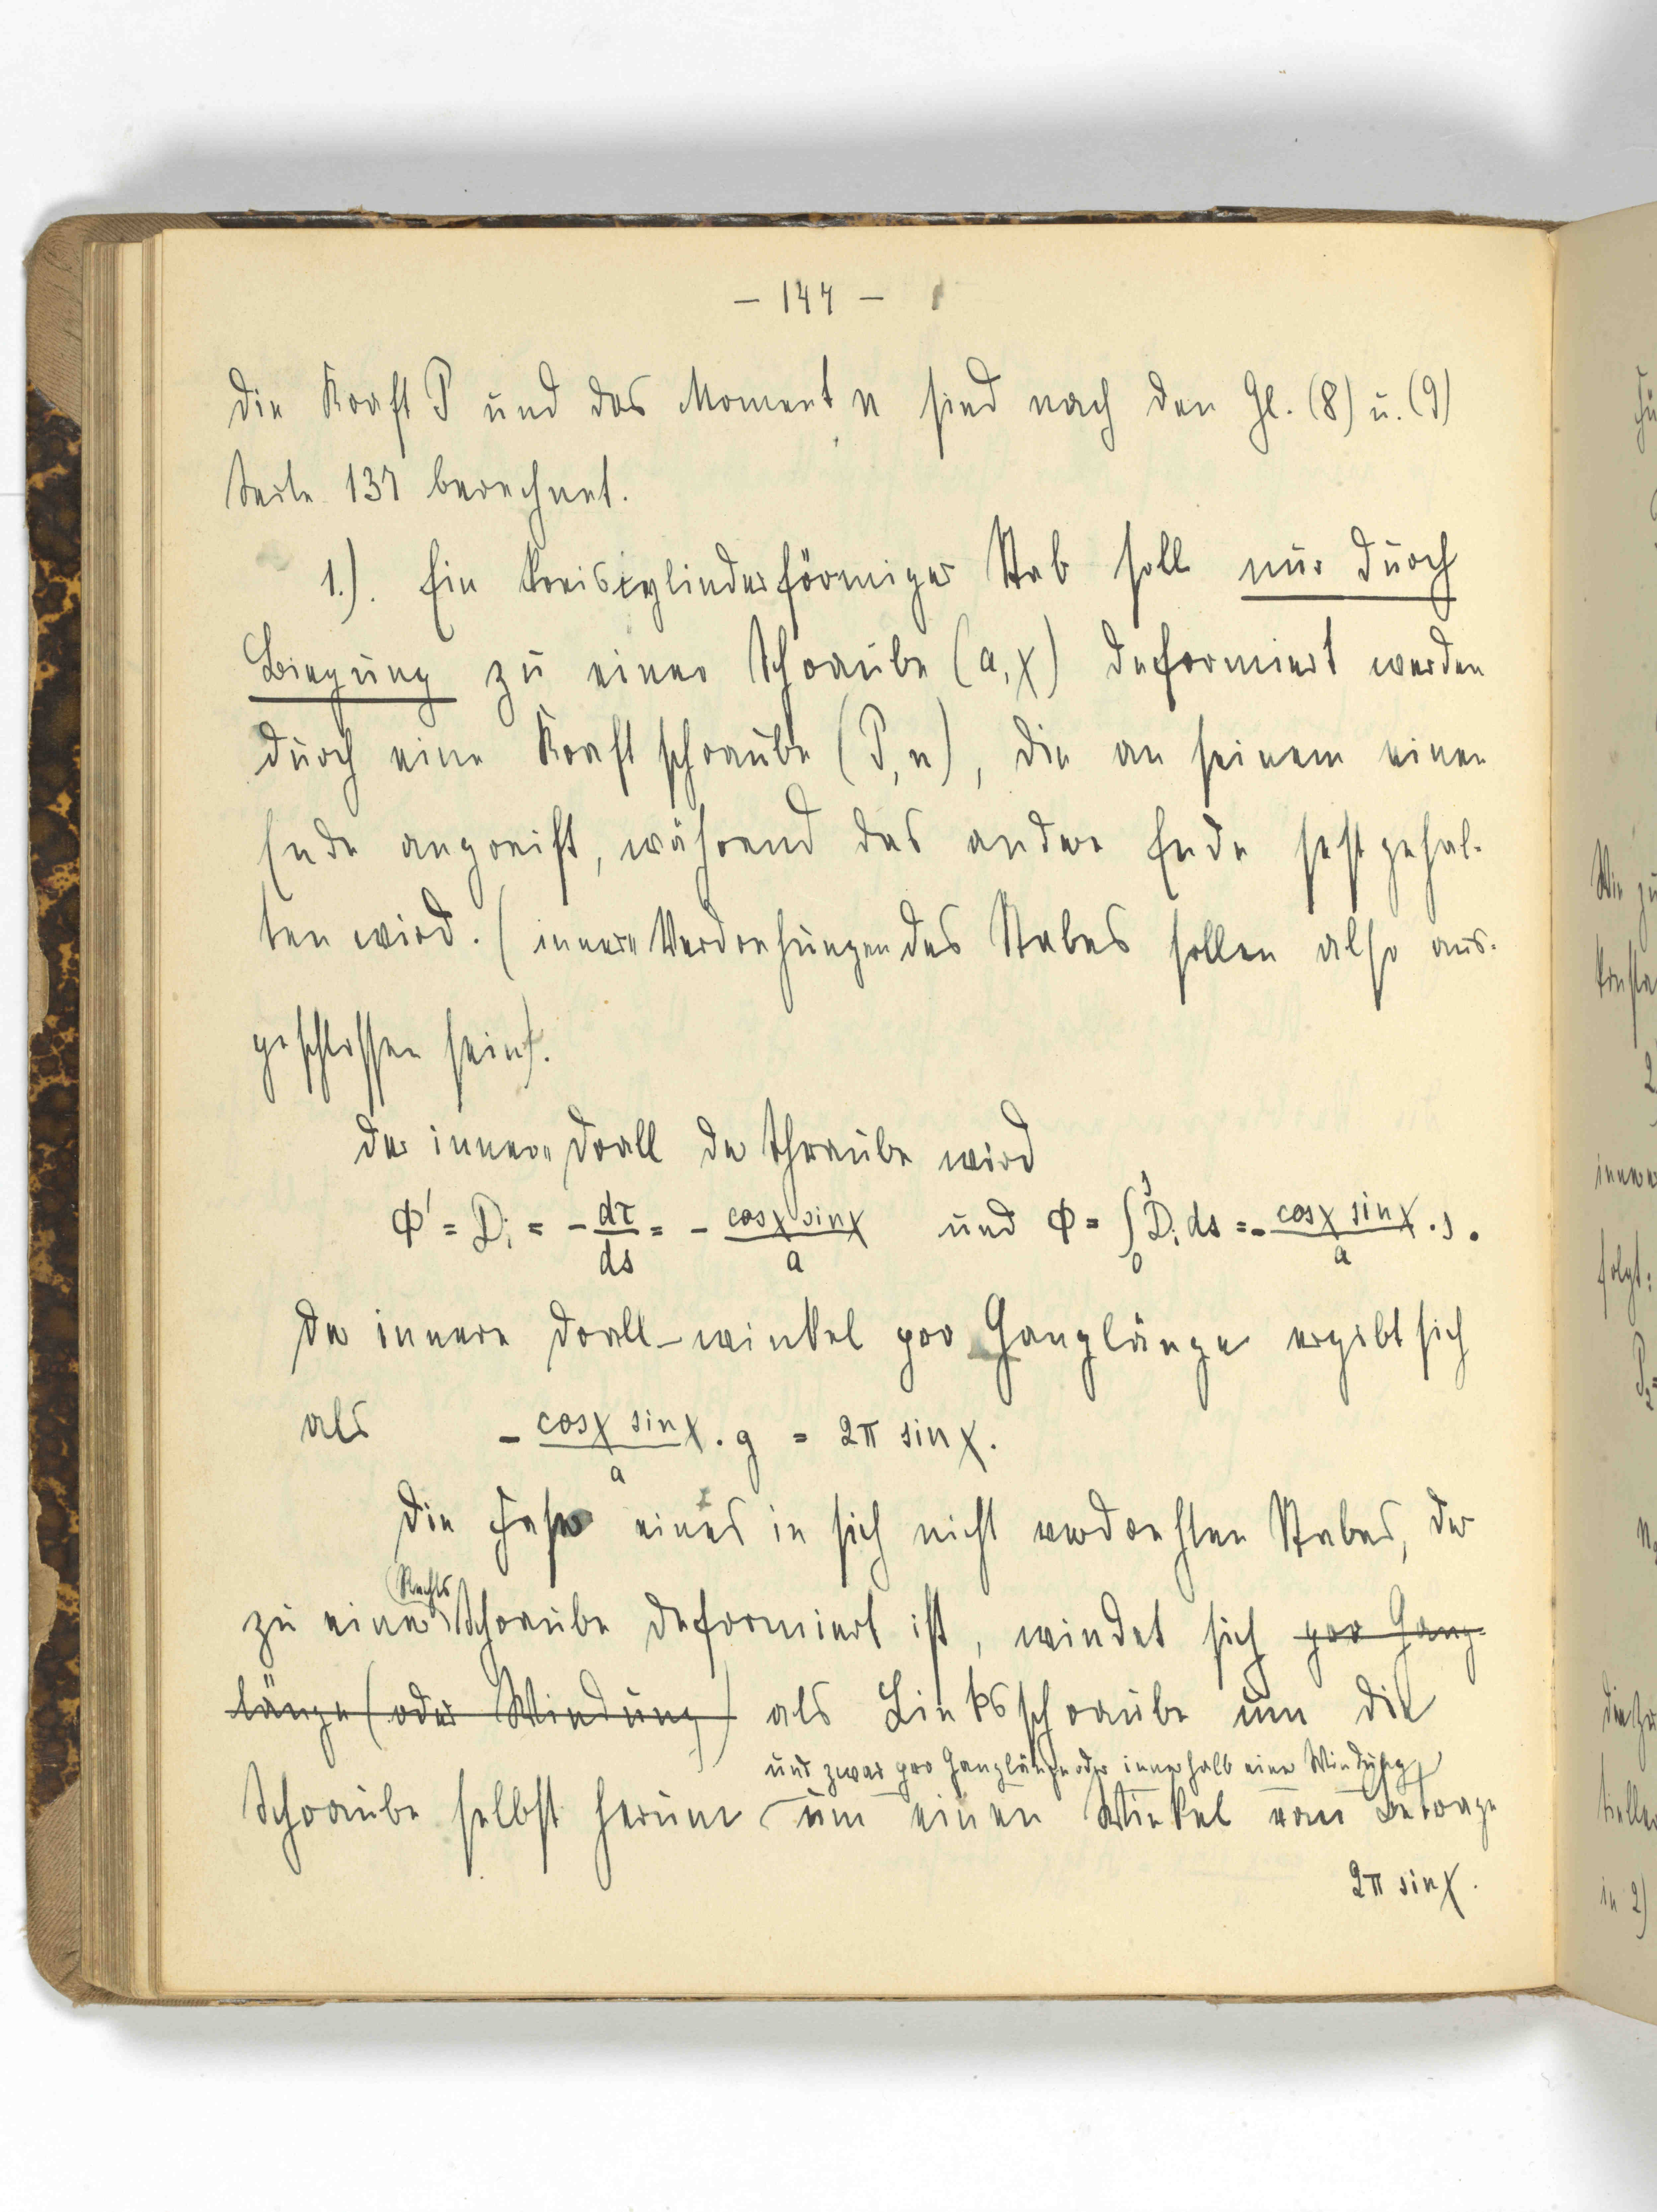 – 144 –
Die Kraft P und das Moment n sind nach den Gl. (8) u. (9)
Seite 137 berechnet.
1.). Ein kreiscylinderförmiger Stab soll nur durch
Biegung zu einer Schraube (a, χ) deformiert werden
durch eine Kraftschraube (P, n), die an seinem einen
Ende angreift, während das andere Ende festgehal-
ten wird. (innere Verdrehungen des Stabes sollen also aus-
geschlossen sein).
Der innere Drall der Schraube wird
Φ' = Di = - dτ/ds = - cosχ sinχ / a und Φ = ∫₀ˢ Di ds = - cosχ sinχ / a · s.
Der innere Drall-winkel pro Ganglänge ergibt sich
als - cosχ sinχ / a · g = 2π sinχ.
Die Faser eines in sich nicht verdrehten Stabes, der
Rechts
zu einer Schraube deformiert ist, windet sich pro Gang-
länge (oder Windung) als Linksschraube um die
und zwar pro Ganglänge oder innerhalb einer Windung
Schraube selbst herum um einen Winkel vom Betrage
2π sinχ.